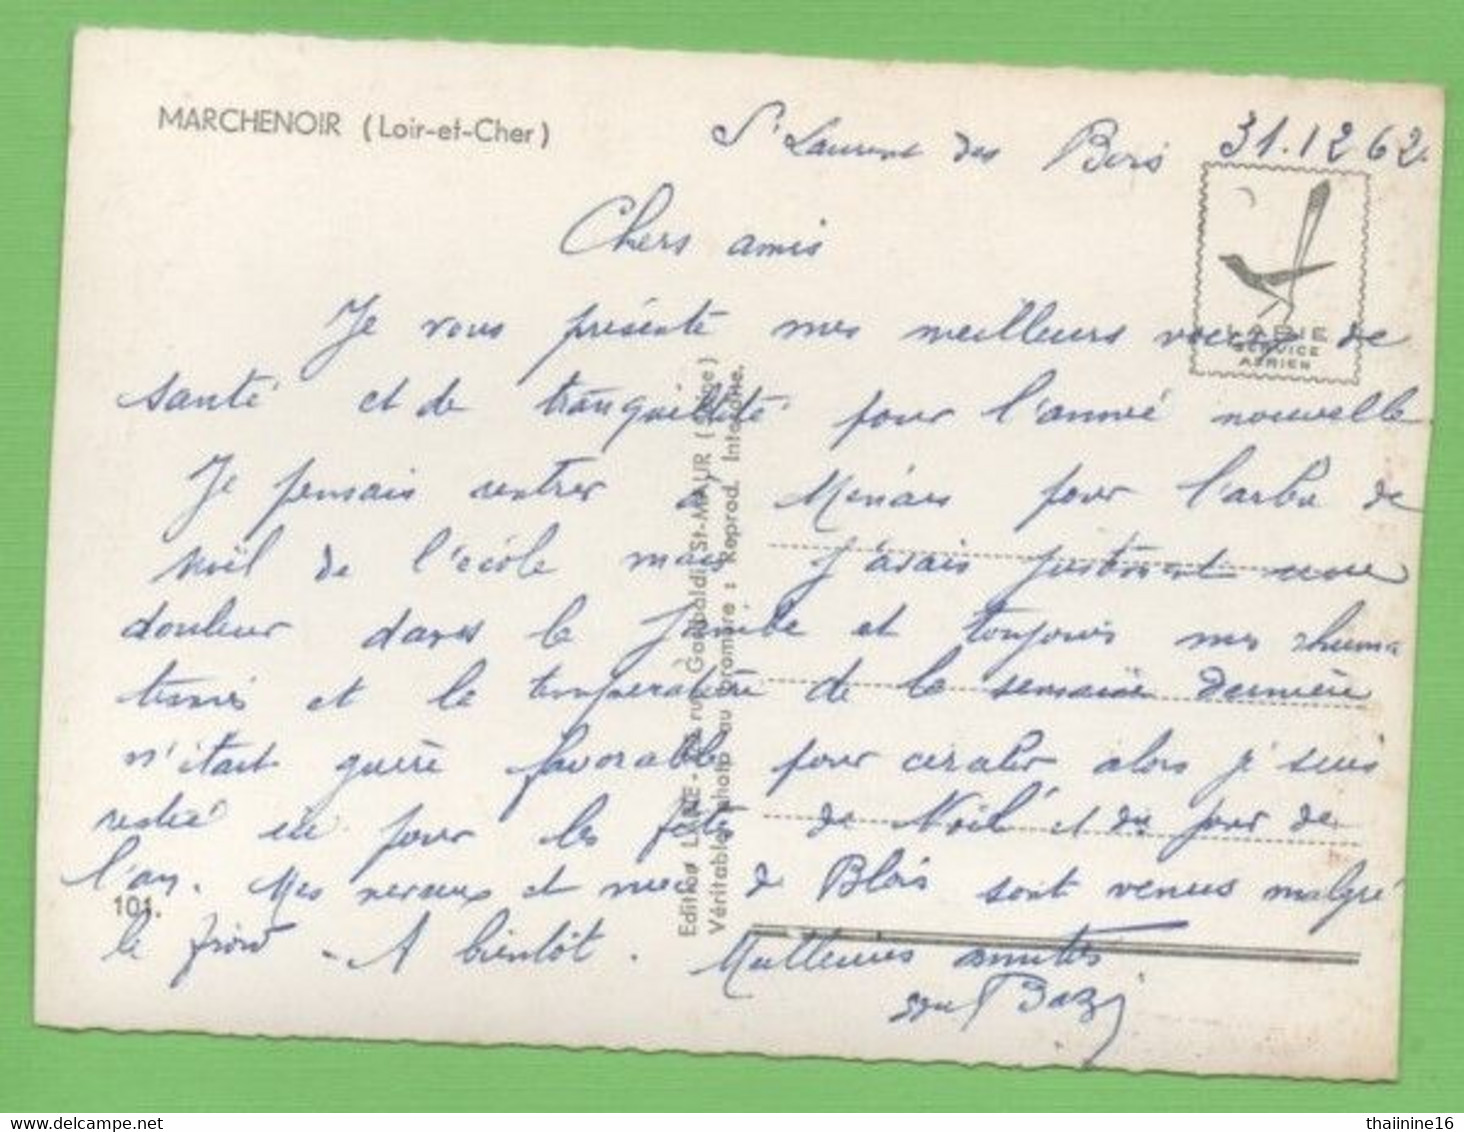 MARCHENOIR (Loir-et-Cher)
St Laurent des Bois 31.12 62.
Chers amis
Je vous présente mes meilleurs voeux de
santé et de tranquillité pour l'année nouvelle
Je pensais rentrer à Menars pour l'arbre de
Noël de l'école mais j'avais justement une
douleur dans la jambe et toujours mes rhuma
tismes et la température de la semaine dernière
n'était guère favorable pour circuler alors je suis
restée ici pour les fêtes de Noël et du jour de
l'an. Mes neveux et nièces de Blois sont venus malgré
le froid - A bientôt. Meilleures amitiés
Bazi
LAPIE
SERVICE
AERIEN
Edition LAPIE - rue Garibaldi, St-MAUR (Seine)
Véritable photo au bromure : Reprod. Interdite.
101.
thaiinine16